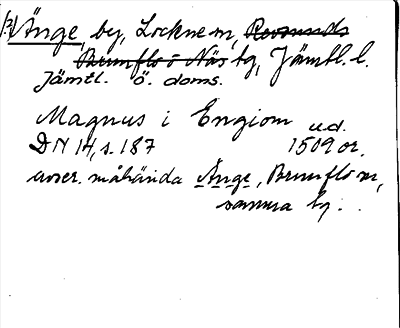 Änge by, Lockne sn, Revsunds
Brunflo o Näs tg, Jämtl. l.
Jämtl. ö. doms.
Magnus i Engiom u.d.
DN 14, s. 187 1509 or.
avser måhända Änge, Brunflo sn,
samma tg.